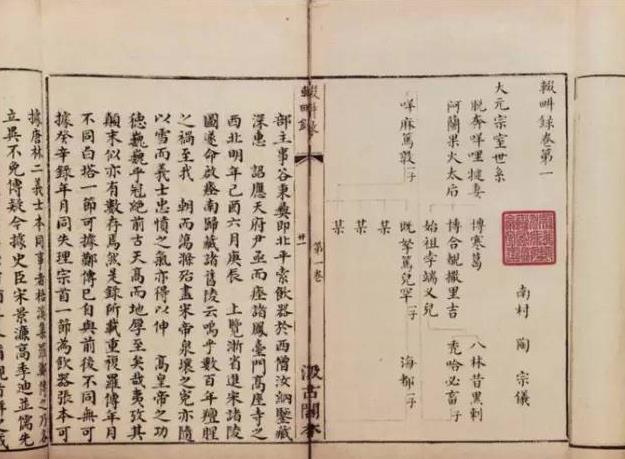 輟畊錄卷第一
南村 陶宗儀
大元宗室世系
脫奔咩哩揵妻
阿蘭果火太后
博寒葛
博合覩撒里吉
始祖孛端叉兒
八林昔黑剌
禿哈必畜一子
咩麻篤敦一子
既拏篤兒罕一子
海都一子
某
某
某
輟畊錄
第一卷
廿一
汲古閣本
部主事谷秉彝即北平索飲器於西僧汝納鑒藏
深惠 詔應天府尹函而瘞諸鳳臺門高座寺之
西北明年己酉六月庚辰 上覽浙省進宋諸陵
圖遂命啟瘞南歸藏諸舊陵云嗚乎數百年羶腥
之禍至我 朝而蕩滌殆盡宋帝泉壤之寃亦隨
以雪而義士忠憤之氣亦得以伸 高皇帝之功
德巍巍乎冠絕前古天高而地厚至矣哉夷攷其
顛末似亦有數存焉然是錄所載重複羅傳年月
不同白塔一節可據鄭傳已自與前後不同無可
據癸辛錄年月同失理宗首一節為飲器張本可
據唐林二義士本同事者梧溪集羅鄭傳之乃各
立異不免傳疑今據史臣宋景濂高季迪並儒先